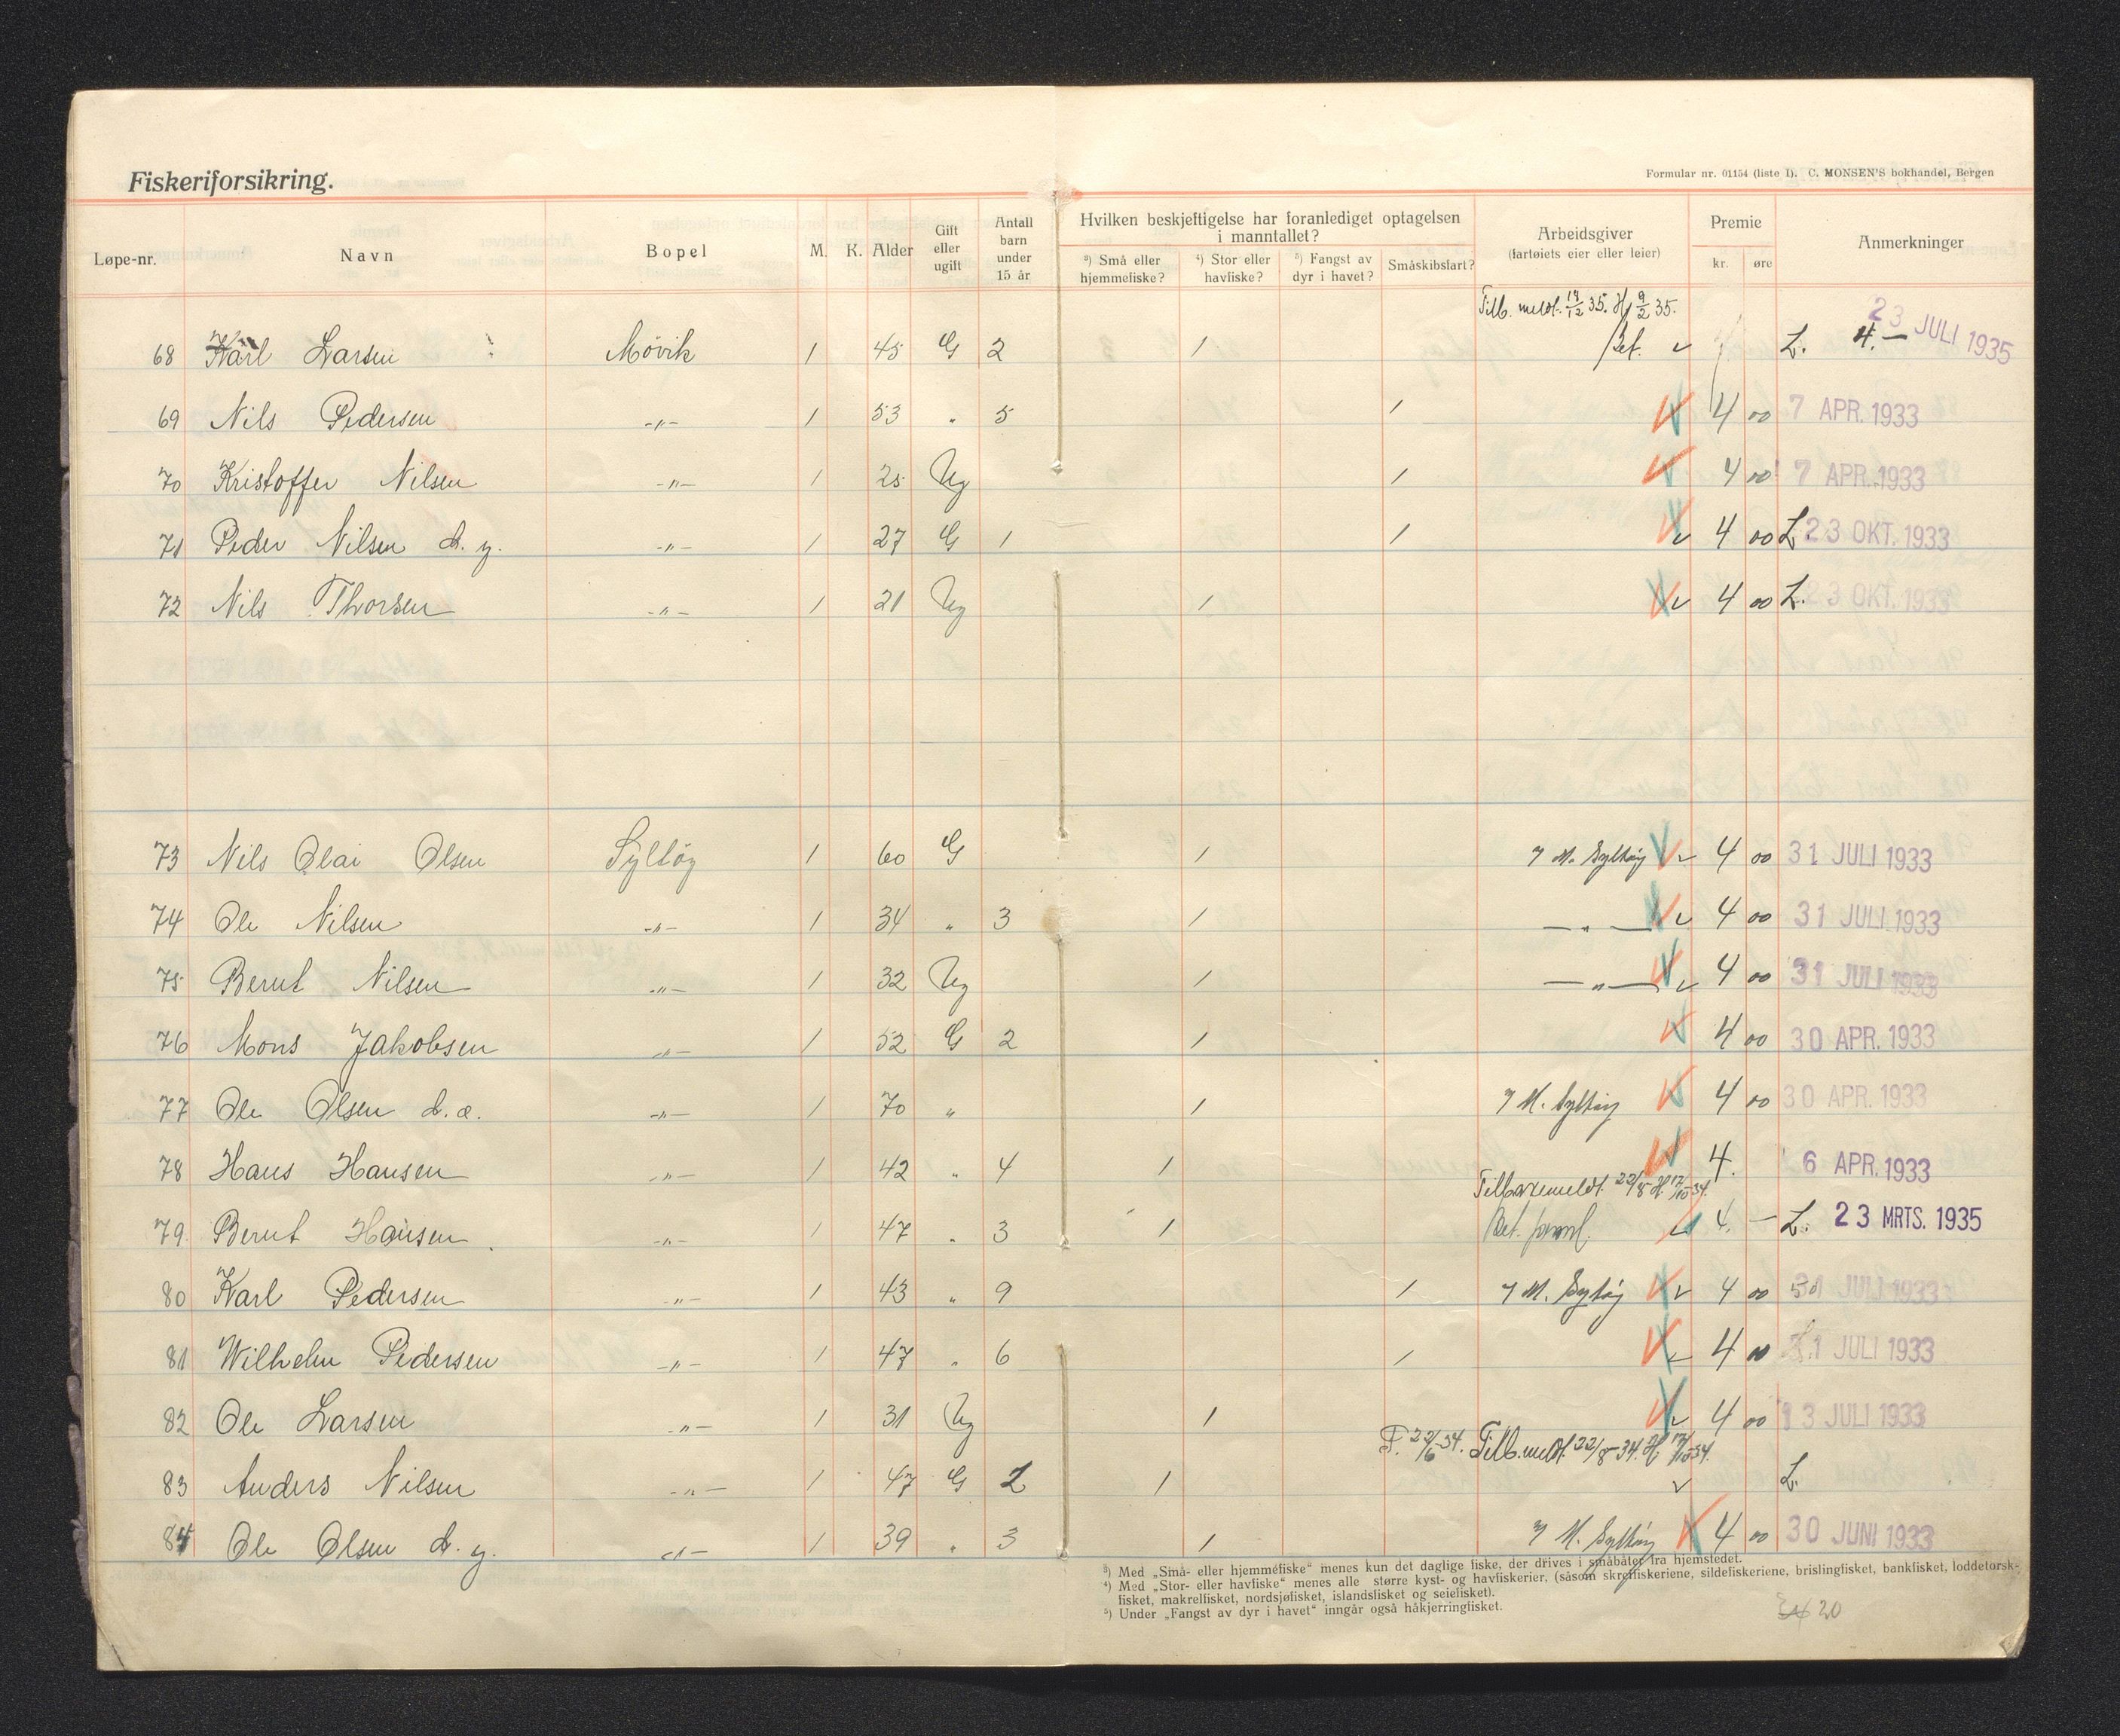 Fiskeriforsikring.
Formular nr. 01154 (liste I). C. MONSEN'S bokhandel, Bergen
Løpe-nr. Navn Bopel M. K. Alder Gift eller ugift Antall barn under 15 år Hvilken beskjeftigelse har foranlediget optagelsen i manntallet? ³) Små eller hjemmefiske? ⁴) Stor eller havfiske? ⁵) Fangst av dyr i havet? Småskibsfart? Arbeidsgiver (fartøiets eier eller leier) Premie kr. øre Anmerkninger
Tilb. meldt. 18/12 35. H 9/2 35.
68 Karl Larsen Møvik 1 45 G 2 1 Bet. L. 4.— 23 JULI 1935
69 Nils Pedersen -"- 1 53 " 5 1 4 00 7 APR. 1933
70 Kristoffer Nilsen -"- 1 25 Ug 1 4 00 7 APR. 1933
71 Peder Nilsen d. y. -"- 1 27 G 1 1 4 00 L 23 OKT. 1933
72 Nils Thorsen -"- 1 21 Ug 1 4 00 L. 23 OKT. 1933
73 Nils Olai Olsen Syltøy 1 60 G 1 M. Syltøy 4 00 31 JULI 1933
74 Ole Nilsen -"- 1 34 " 3 1 — " — 4 00 31 JULI 1933
75 Bernt Nilsen -"- 1 32 Ug 1 — " — 4 00 31 JULI 1933
76 Mons Jakobsen -"- 1 52 G 2 1 4 00 30 APR. 1933
77 Ole Olsen d. e. -"- 1 70 " 1 M. Syltøy 4 00 30 APR. 1933
78 Hans Hansen -"- 1 42 " 4 1 4. 6 APR. 1933
22/8 H. 17/10-34.
79 Bernt Hansen -"- 1 47 " 3 1 Bet. 4. — L. 23 MRTS. 1935
80 Karl Pedersen -"- 1 43 " 9 1 M. Syltøy 4 00 31 JULI 1933
81 Wilhelm Pedersen -"- 1 47 " 6 1 4 00 31 JULI 1933
82 Ole Larsen -"- 1 31 Ug 1 4 00 13 JULI 1933
F. 22/6-34. Tilb. meldt. 22/8-34. H 17/10-34.
83 Anders Nilsen -"- 1 47 G 2 1 L.
84 Ole Olsen d. y. -"- 1 39 " 3 1 M. Syltøy 4 00 30 JUNI 1933
³) Med „Små- eller hjemmefiske“ menes kun det daglige fiske, der drives i småbåter fra hjemstedet.
⁴) Med „Stor- eller havfiske“ menes alle større kyst- og havfiskerier, (såsom skreifiskeriene, sildefiskeriene, brislingfisket, bankfisket, loddetorsk-
fisket, makrellfisket, nordsjøfisket, islandsfisket og seiefisket).
⁵) Under „Fangst av dyr i havet“ inngår også håkjerringfisket.
20